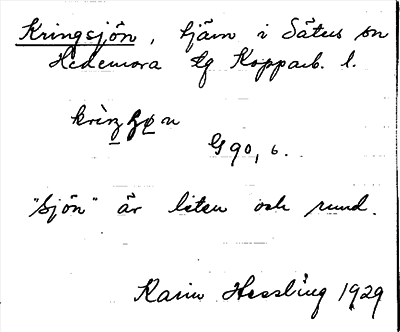 Kringsjön, tjärn i Säters sn
Hedemora tg Kopparb. l.
G 90, 6.
"Sjön" är liten och rund.
Karin Hessling 1929